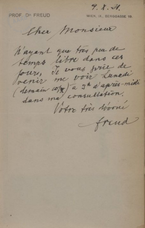 PROF. Dr FREUD
Cher Monsieur
N'ayant que très peu de
temps libre dans ces
jours, je vous prie de
venir me voir
(demain) à 3h après-midi
dans ma consultation.
Votre très dévoué
Freud